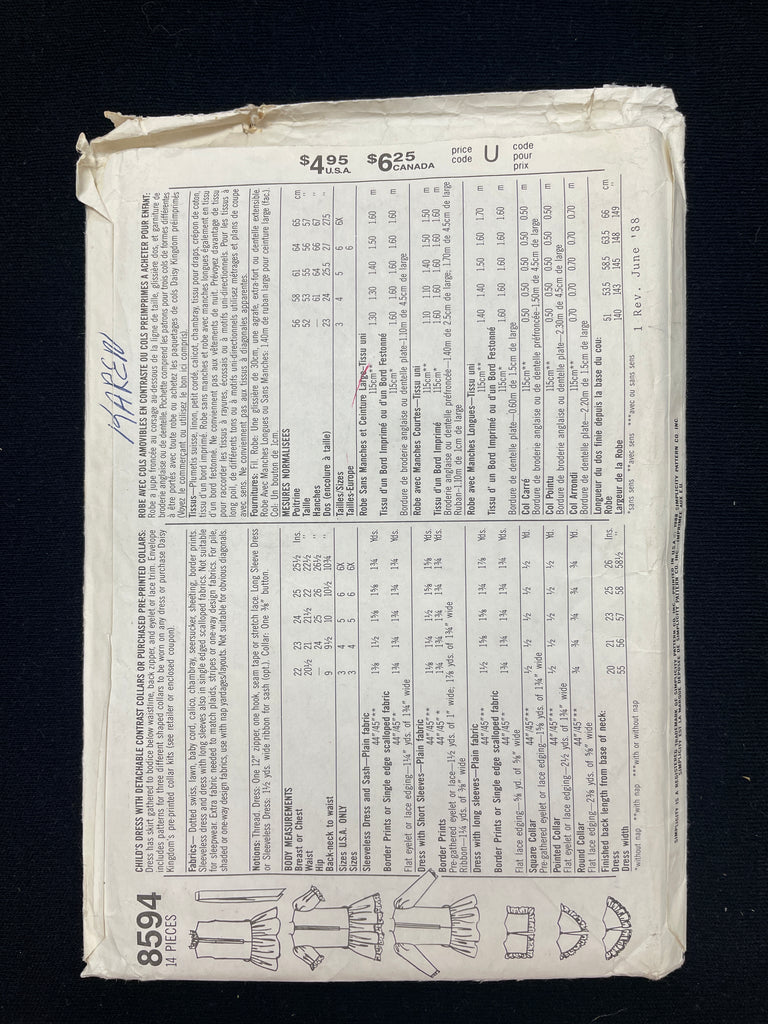 8594
14 PIECES
CHILD'S DRESS WITH DETACHABLE CONTRAST COLLARS OR PURCHASED PRE-PRINTED COLLARS:
Dress has skirt gathered to bodice below waistline, back zipper, and eyelet or lace trim. Envelope
includes patterns for three different shaped collars to be worn on any dress or purchase Daisy
Kingdom's pre-printed collar kits (see retailer or enclosed coupon).
Fabrics—Dotted swiss, lawn, baby cord, calico, chambray, seersucker, sheeting, border prints.
Sleeveless dress and dress with long sleeves also in single edged scalloped fabrics. Not suitable
for sleepwear. Extra fabric needed to match plaids, stripes or one-way design fabrics. For pile,
shaded or one-way design fabrics, use with nap yardages/layouts. Not suitable for obvious diagonals.
Notions: Thread. Dress: One 12" zipper, one hook, seam tape or stretch lace. Long Sleeve Dress
or Sleeveless Dress: 1½ yds. wide ribbon for sash (opt.). Collar: One ⅜" button.
BODY MEASUREMENTS
Breast or Chest 22 23 24 25 25½ Ins.
Waist 20½ 21 21½ 22 22½ "
Hip — 24 25 26 26½ "
Back-neck to waist 9 9½ 10 10½ 10¾ "
Sizes U.S.A. ONLY 3 4 5 6 6X
Sizes 3 4 5 6 6X
Sleeveless Dress and Sash—Plain fabric
44"/45"*** 1⅜ 1½ 1⅝ 1⅝ 1¾ Yds.
Border Prints or Single edge scalloped fabric
44"/45"** 1¾ 1¾ 1¾ 1¾ 1¾ Yds.
Flat eyelet or lace edging—1¼" yds. of 1¾" wide
Dress with Short Sleeves—Plain fabric
44"/45"*** 1⅛ 1¼ 1½ 1⅝ 1⅝ Yds.
Border Prints
44"/45"* 1¾ 1¾ 1¾ 1¾ 1¾ Yds.
Pre-gathered eyelet or lace—1½ yds. of 1" wide; 1⅞ yds. of 1¾" wide
Ribbon—1¼ yds. of ⅜" wide
Dress with long sleeves—Plain fabric
44"/45"*** 1½ 1⅝ 1⅝ 1¾ 1⅞ Yds.
Border Prints or Single edge scalloped fabric
44"/45" 1¾ 1¾ 1¾ 1¾ 1¾ Yds.
Flat lace edging—⅝ yd. of ⅝" wide
Square Collar 44"/45"*** ½ ½ ½ ½ ½ Yd.
Pre-gathered eyelet or lace edging—1⅝ yds. of 1¾" wide
Pointed Collar 44"/45"*** ½ ½ ½ ½ ½ Yd.
Flat eyelet or lace edging—2½ yds. of 1¾" wide
Round Collar 44"/45"*** ¾ ¾ ¾ ¾ ¾ Yd.
Flat lace edging—2⅜ yds. of ⅝" wide
Finished back length from base of neck:
Dress 20 21 23 25 26 Ins.
Dress width 55 56 57 58 58½ "
*without nap **with nap ***with or without nap
KAREN
$4.95 U.S.A. $6.25 CANADA price code U code pour prix
ROBE AVEC COLS AMOVIBLES EN CONTRASTE OU COLS PREIMPRIMES A ACHETER POUR ENFANT:
Robe a jupe froncée au corsage au-dessous de la ligne de taille, glissière dos, et garniture de
broderie anglaise ou de dentelle. Pochette comprend les patrons pour trois cols de formes différentes
à être portés avec toute robe ou achetez les paquetages de cols Daisy Kingdom préimprimés
(Voyez le commerçant ou utilisez le bon ici compris).
Tissus—Plumetis suisse, linon, petit cordé, calicot, chambray, tissu pour draps, crépon de coton,
tissu d'un bord imprimé. Robe sans manches et robe avec manches longues également en tissu
d'un bord festonné. Ne conviennent pas aux vêtements de nuit. Prévoyez davantage de tissu
pour raccorder les tissus à rayures, écossais ou à motifs uni-directionnels. Pour les tissus à
long poil, de différents tons ou à motifs uni-directionnels utilisez métrages et plans de coupe
avec sens. Ne conviennent pas aux tissus à diagonales apparentes.
Fournitures: Fil. Robe: Une glissière de 30cm, une agrafe, extra-fort ou dentelle extensible.
Robe Avec Manches Longues ou Sans Manches: 1.40m de ruban large pour ceinture large (fac.).
Col: Un bouton de 1cm.
MESURES NORMALISEES
Poitrine 56 58 61 64 65 cm
Taille 52 53 55 56 57 "
Hanches — 61 64 66 67 "
Dos (encolure à taille) 23 24 25.5 27 27.5 "
Tailles/Sizes 3 4 5 6 6X
Tailles-Europe
Robe Sans Manches et Ceinture Large—Tissu uni
115cm** 1.30 1.30 1.40 1.50 1.60 m
Tissu d'un Bord Imprimé ou d'un Bord Festonné
115cm* 1.60 1.60 1.60 1.60 1.60 m
Bordure de broderie anglaise ou dentelle plate—1.10m de 4.5cm de large
Robe avec Manches Courtes—Tissu uni
115cm** 1.10 1.10 1.40 1.50 1.50 m
Tissu d'un Bord Imprimé
115cm* 1.60 1.60 1.60 1.60 1.60 m
Broderie anglaise ou dentelle préfroncée—1.40m de 2.5cm de large; 1.70m de 4.5cm de large
Ruban-1.10m de 1cm de large
Robe avec Manches Longues—Tissu uni
115cm** 1.40 1.40 1.50 1.60 1.70 m
Tissu d' un Bord Imprimé ou d'un Bord Festonné
115cm* 1.60 1.60 1.60 1.60 1.60 m
Bordure de dentelle plate—0.60m de 1.5cm de large
Col Carré 115cm** 0.50 0.50 0.50 0.50 0.50 m
Bordure de broderie anglaise ou de dentelle préfroncée-1.50m de 4.5cm de large
Col Pointu 115cm** 0.50 0.50 0.50 0.50 0.50 m
Bordure de broderie anglaise ou dentelle plate—2.30m de 4.5cm de large
Col Arrondi 115cm** 0.70 0.70 0.70 0.70 0.70 m
Bordure de dentelle plate—2.20m de 1.5cm de large
Longueur du dos finie depuis la base du cou:
Robe 51 53.5 58.5 63.5 66 cm
Largeur de la Robe 140 143 145 148 149 "
*sans sens **avec sens ***avec ou sans sens
1 Rev. June '88